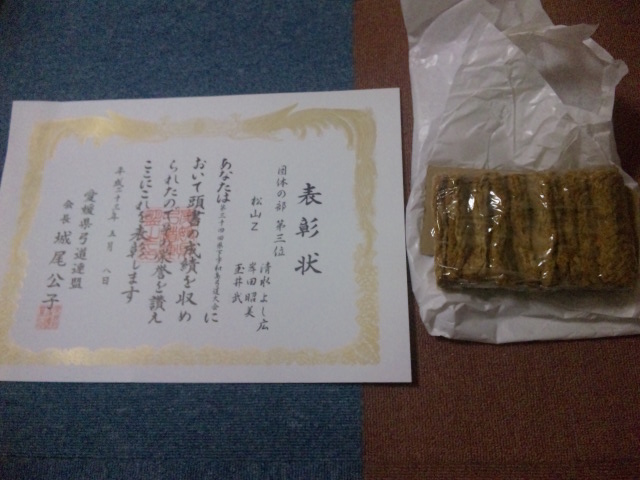 表彰状
団体の部 第三位
松山Z
清水よし広
岸田昭美
玉井武
あなたは
大会に
おいて頭書の成績を収め
られたの
ここにこれを表彰します
平成二十三年 五月 八日
愛媛県弓道連盟
会長 城尾公子